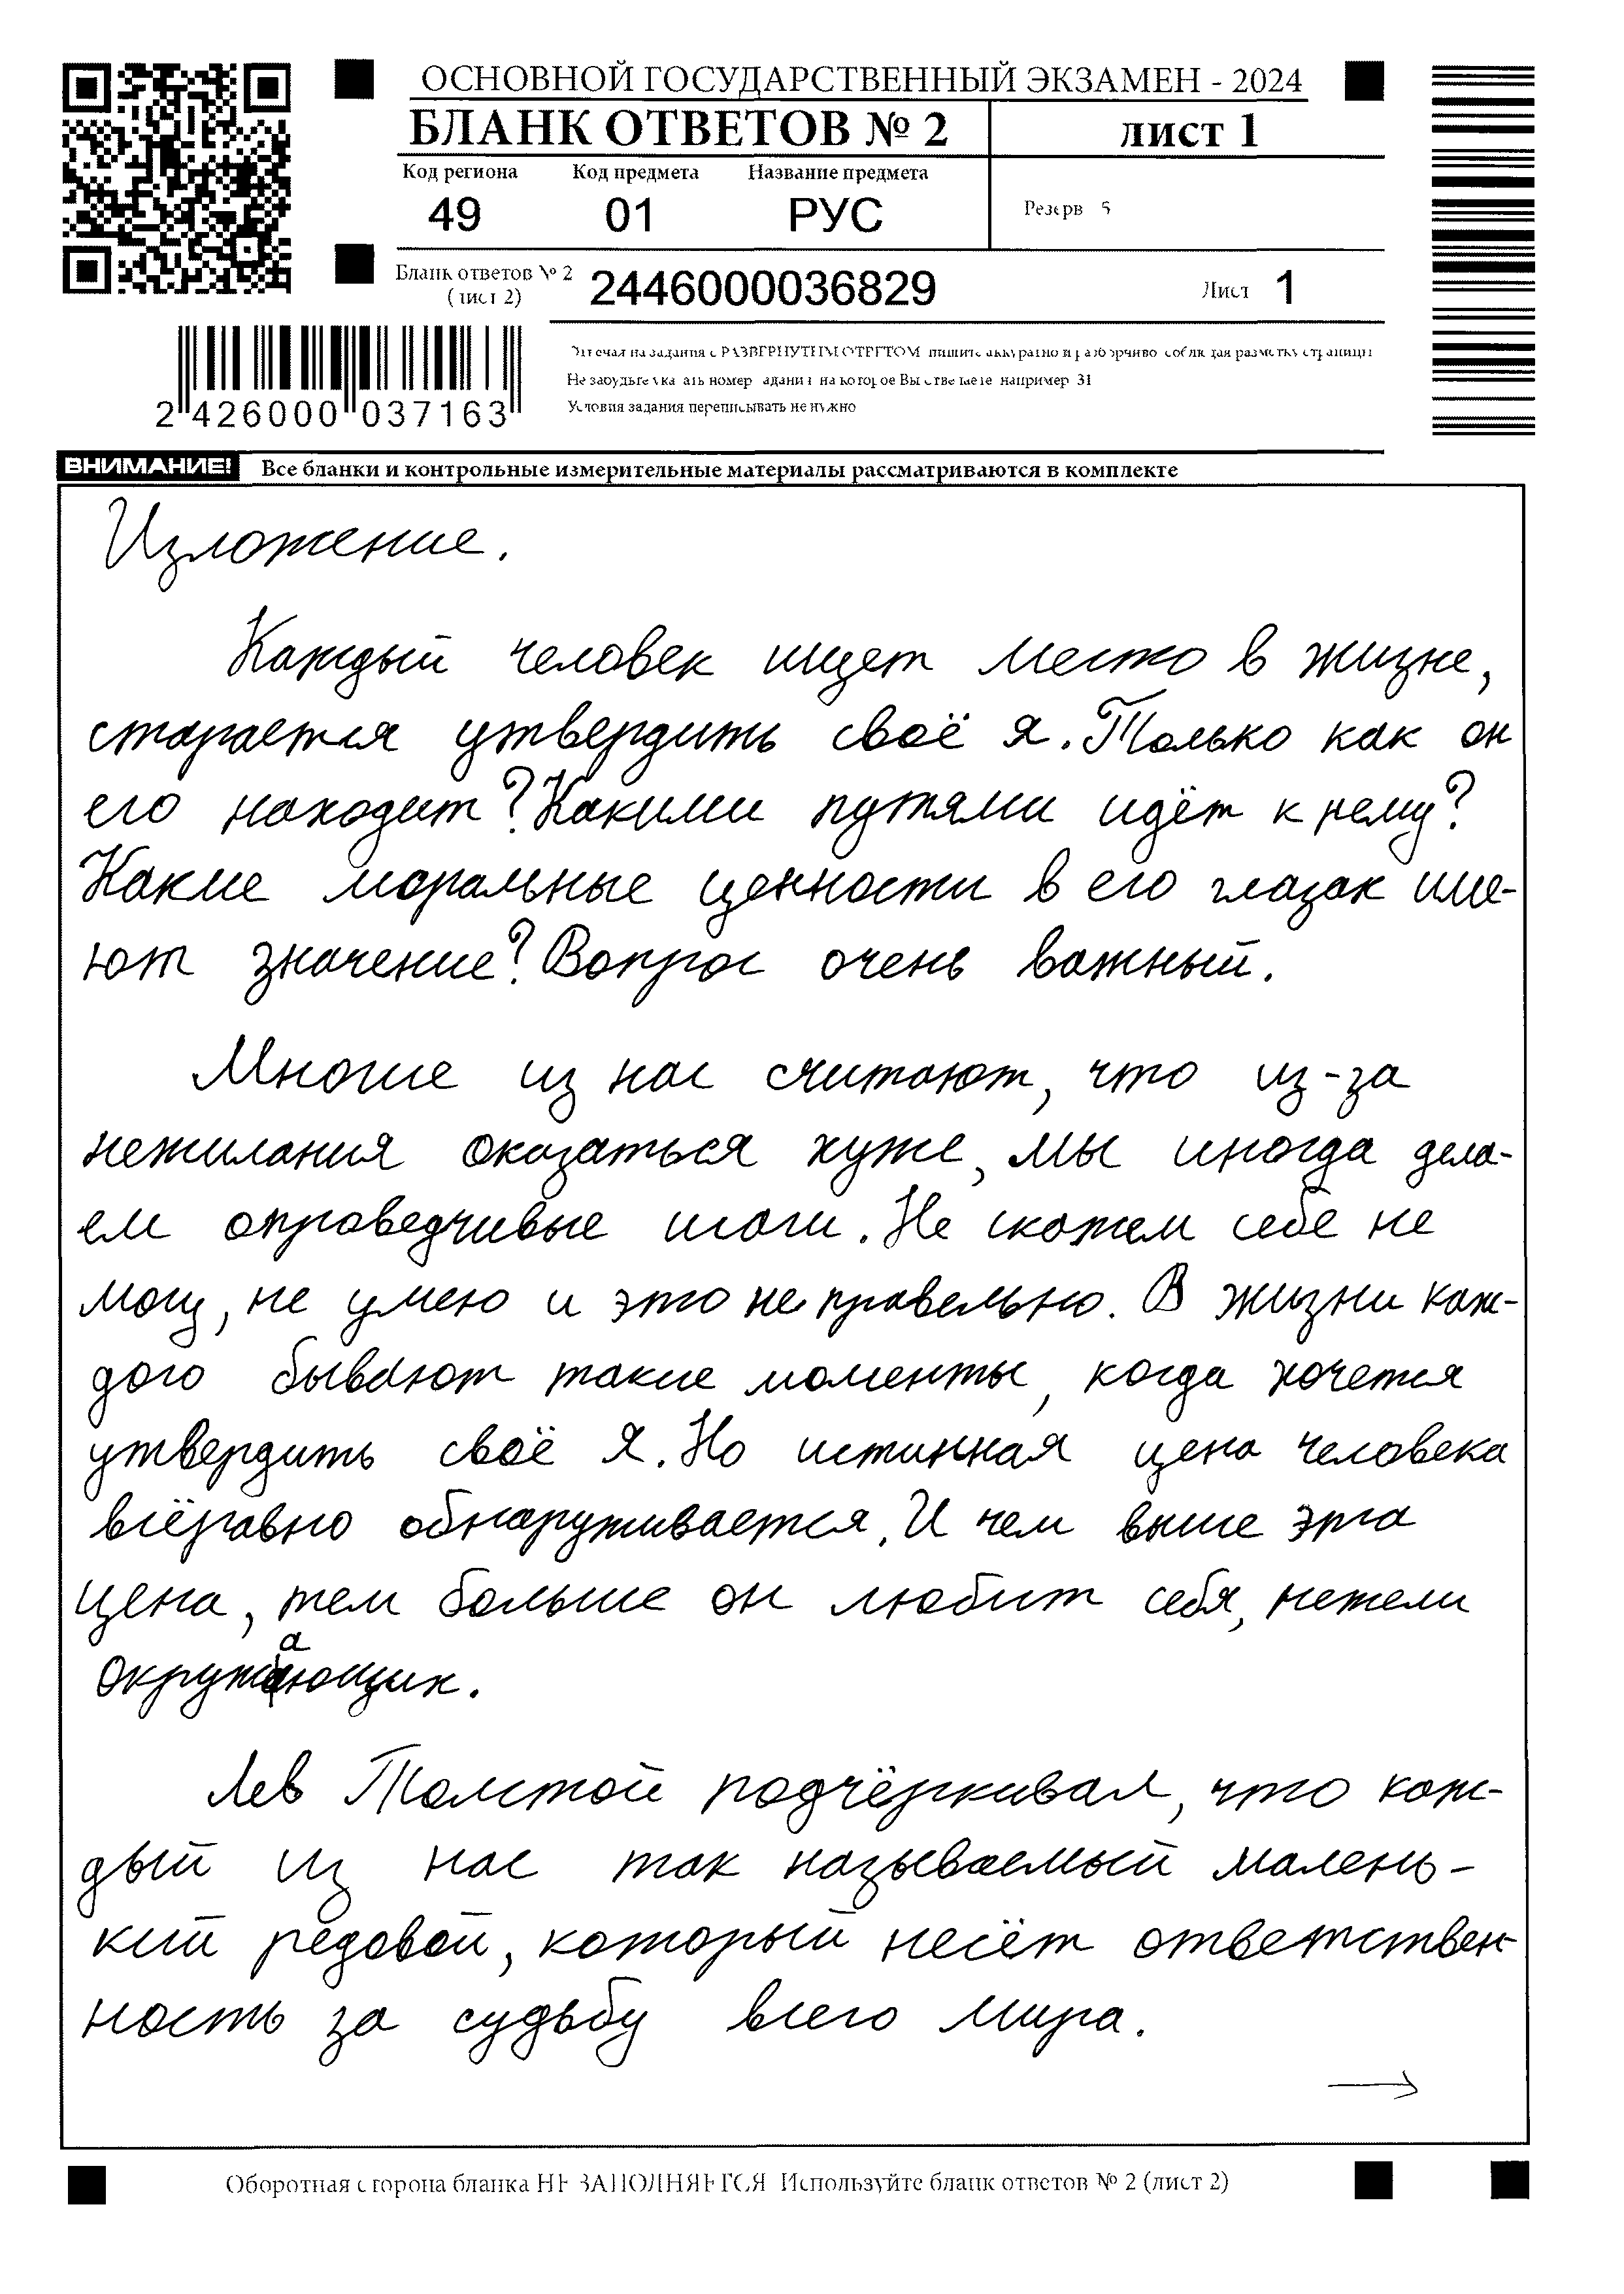 ОСНОВНОЙ ГОСУДАРСТВЕННЫЙ ЭКЗАМЕН - 2024
БЛАНК ОТВЕТОВ № 2
ЛИСТ 1
Код региона Код предмета Название предмета
49 01 РУС
Резерв 5
Бланк ответов № 2
(лист 2)
2446000036829
Лист 1
2 426000 037163
Отвечая на задания с РАЗВЕРНУТЫМ ОТВЕТОМ, пишите аккуратно и разборчиво, соблюдая разметку страницы
Не забудьте указать номер задания, на которое Вы отвечаете, например, 31
Условия задания переписывать не нужно
ВНИМАНИЕ! Все бланки и контрольные измерительные материалы рассматриваются в комплекте
Изложение.
Каждый человек ищет место в жизне,
старается утвердить своё я. Только как он
его находит? Какими путями идёт к нему?
Какие моральные ценности в его глазах име-
ют значение? Вопрос очень важный.
Многие из нас считают, что из-за
нежилания оказаться хуже, мы иногда дела-
ем опроведчивые шаги. Не скажем себе не
могу, не умею и это не правельно. В жизни каж-
дого бывают такие моменты, когда хочется
утвердить своё Я. Но истинная цена человека
всёравно обнаруживается. И чем выше эта
цена, тем больше он любит себя, нежели
окружающих.
Лев Толстой подчёркивал, что каж-
дый из нас так называемый малень-
кий редовой, который несёт ответствен-
ность за судьбу всего мира.
→
Оборотная сторона бланка НЕ ЗАПОЛНЯЕТСЯ. Используйте бланк ответов № 2 (лист 2)